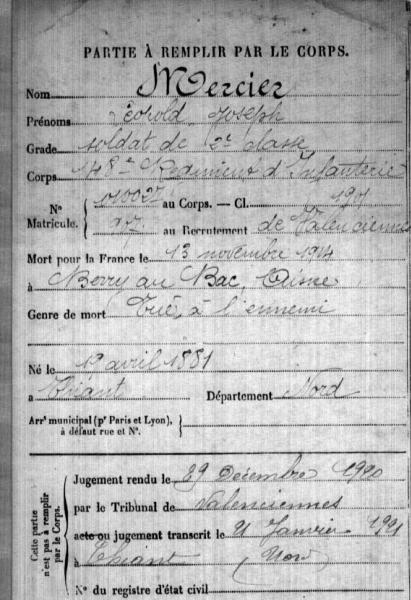 PARTIE À REMPLIR PAR LE CORPS.
Nom Mercier
Prénoms Léopold Joseph
Grade soldat de 2e classe
Corps 148e Régiment d'Infanterie
N° Matricule. { au Corps. — Cl. 191
au Recrutement de Valenciennes
Mort pour la France le 13 novembre 1914
à Berry au Bac, Aisne
Genre de mort Tué à l'ennemi
Né le avril 1881
a Thiant Département Nord
Arrt municipal (pr Paris et Lyon),
à défaut rue et N°.
Cette partie n'est pas à remplir par le Corps.
Jugement rendu le 29 Décembre 1920
par le Tribunal de Valenciennes
acte ou jugement transcrit le 21 Janvier 1921
à Thiant (Nord
N° du registre d'état civil